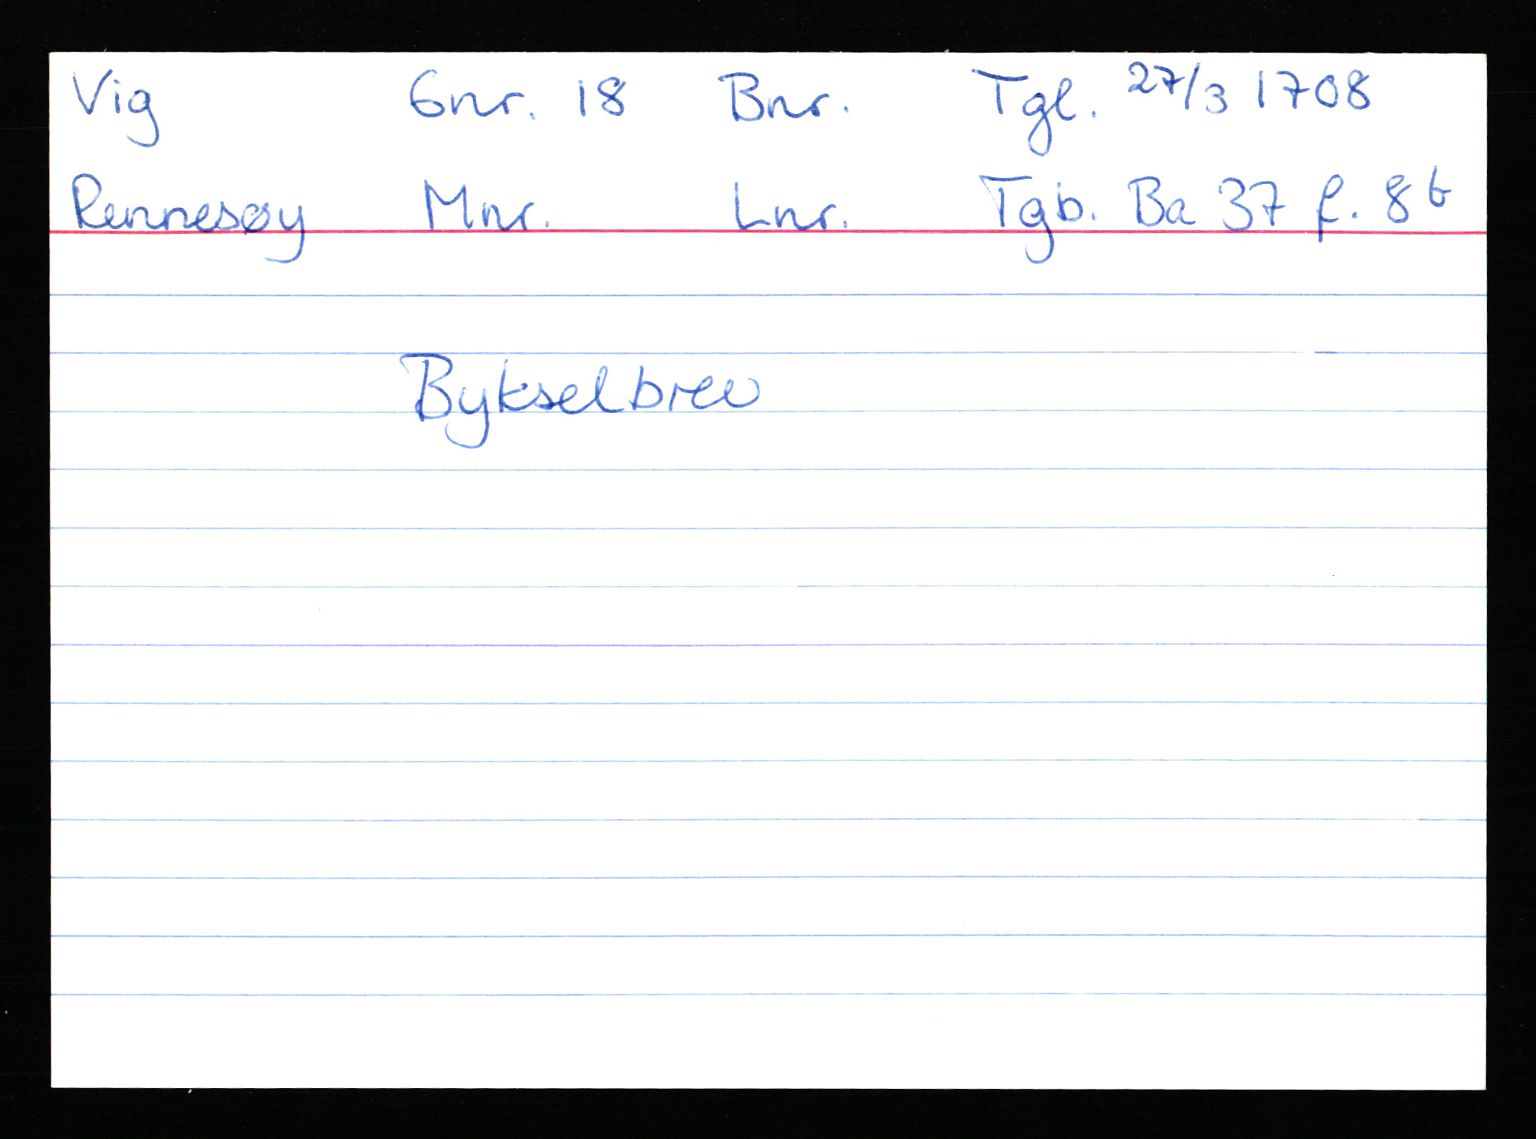 Vig Gnr. 18 Bnr. Tgl. 27/3 1708
Rennesøy Mnr. Lnr. Tgb. Ba 37 f. 8b
Bykselbrev